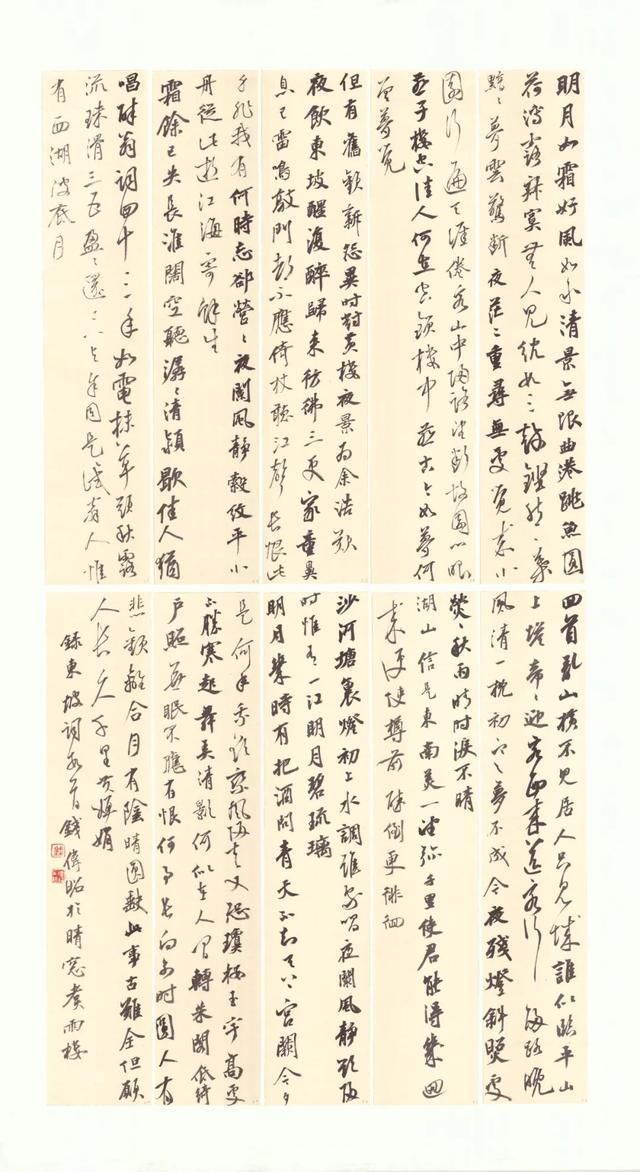 明月如霜好風如水清景無限曲港跳魚圓
荷瀉露寂寞無人見紞如三鼓鏗然一葉
黯黯夢雲驚斷夜茫茫重尋無處覺來小
園行遍天涯倦客山中歸路望斷故園心眼
燕子樓空佳人何在空鎖樓中燕古今如夢何
曾夢覺
但有舊歡新怨異時對黃樓夜景為余浩歎
夜飲東坡醒復醉歸來彷彿三更家童鼻
息已雷鳴敲門都不應倚杖聽江聲長恨此
身非我有何時忘卻營營夜闌風靜縠紋平小
舟從此逝江海寄餘生
霜餘已失長淮闊空聽潺潺清潁歇佳人猶
唱醉翁詞四十三年如電抹草頭秋露
流珠滑三五盈盈還二八與余同是識翁人惟
有西湖波底月
回首亂山橫不見居人只見城誰似臨平山
上塔亭亭迎客西來送客行歸路晚
風清一枕初寒夢不成今夜殘燈斜照處
熒熒秋雨晴時淚不晴
湖山信是東南美一望彌千里使君能得幾回
來便使樽前醉倒更徘徊
沙河塘裏燈初上水調誰家唱夜闌風靜欲歸
時惟有一江明月碧琉璃
明月幾時有把酒問青天不知天上宮闕今夕
是何年我欲乘風歸去又恐瓊樓玉宇高處
不勝寒起舞弄清影何似在人間轉朱閣低綺
戶照無眠不應有恨何事長向別時圓人有
悲歡離合月有陰晴圓缺此事古難全但願
人長久千里共嬋娟
錄東坡詞數首錢偉昭於晴窗煮雨樓